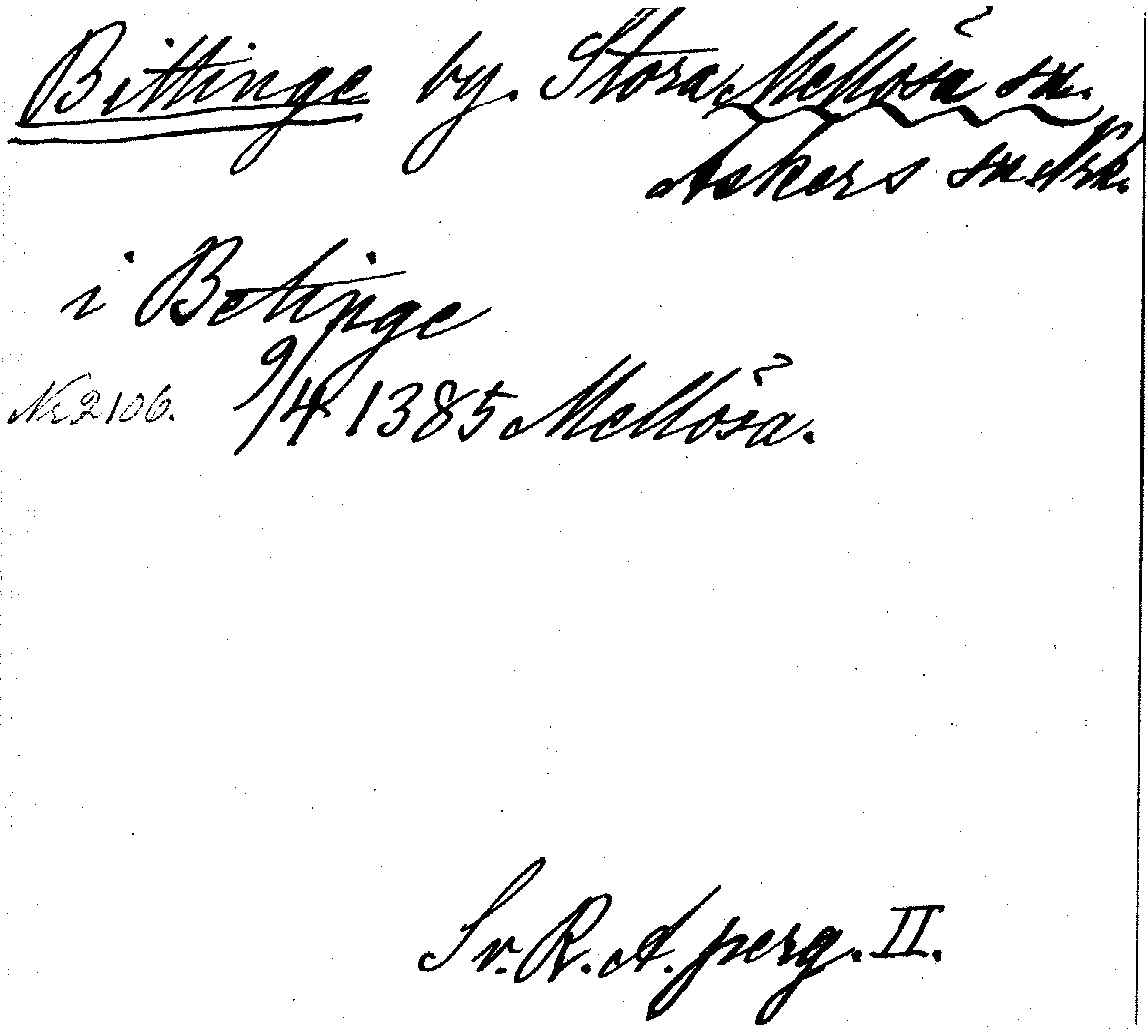 Bittinge by. Stora Mellösa sn.
Askers sn Nrk.
i Betinge
Nr 2106. 9/4 1385 Mellösa.
Sv. R. A. perg. II.